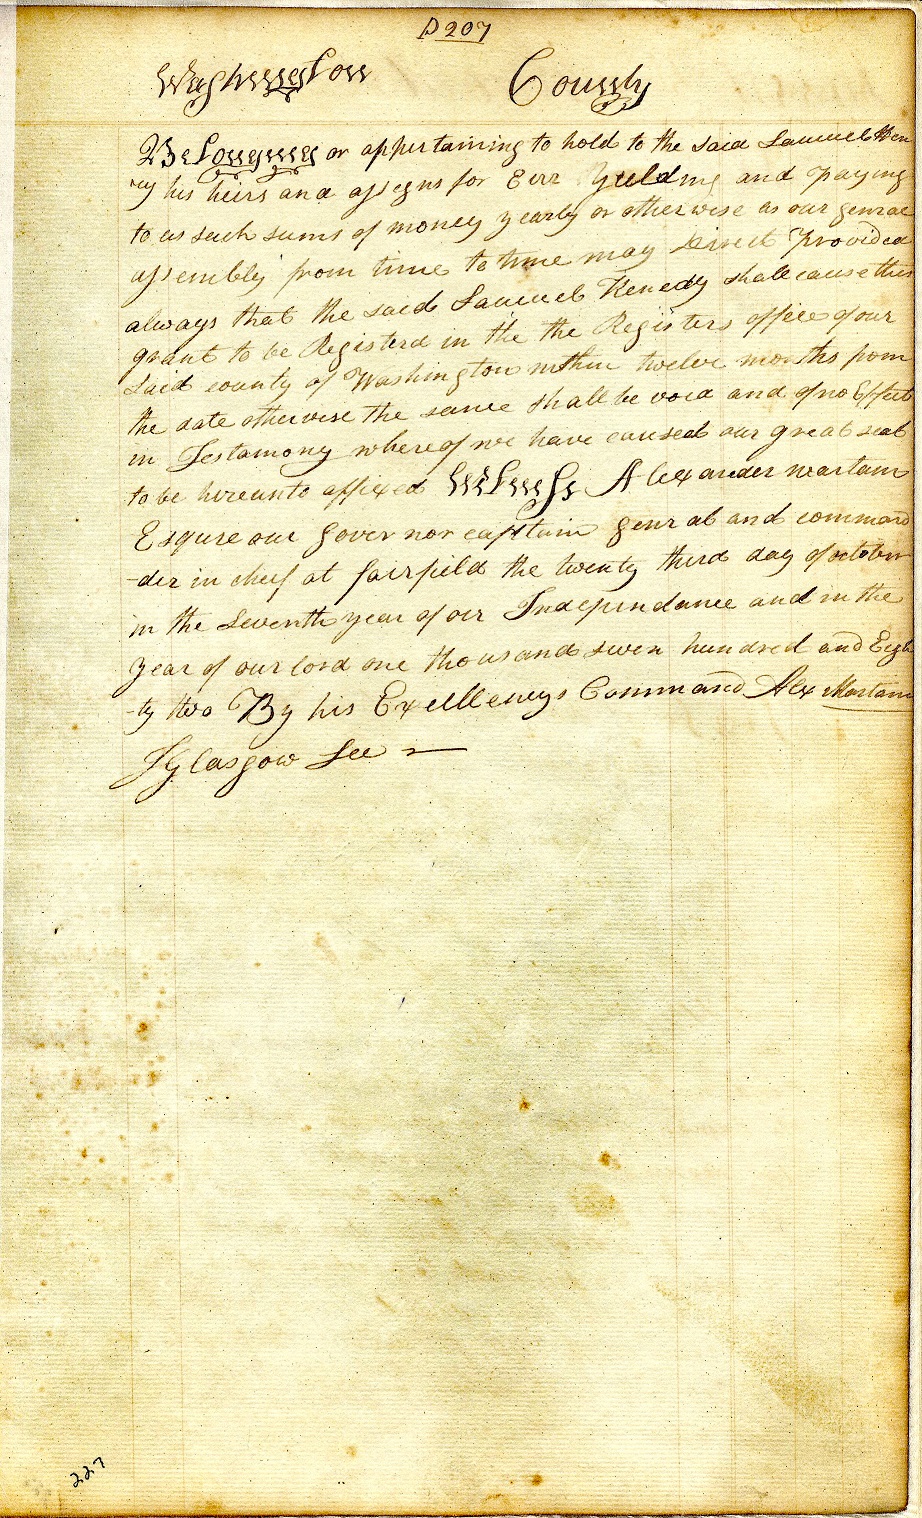 P 207
Washington County
Belonging or appertaining to hold to the said Samuel Hen
ry his heirs and assegns for Ever Yuelding and paying
to us such sums of money yearly or otherwise as our genral
assembly from time to time may Direct Provided
always that the said Samuel Kenedy shall cause this
grant to be Registerd in the the Registers office of our
said county of Washington within twelve months from
the date otherwise the same shall be void and of no Effect
in Testamony whereof we have caused our great seal
to be hereunto affixed Witness Alexander martain
Esqure our governor captain genral and comman
-der in cheif at fairfield the twenty third day of october
in the seventh year of our Independance and in the
year of our lord one thousand seven hundred and Eigh
-ty two By his Excellencys Command Alex Martain
J Glasgow Sec
227